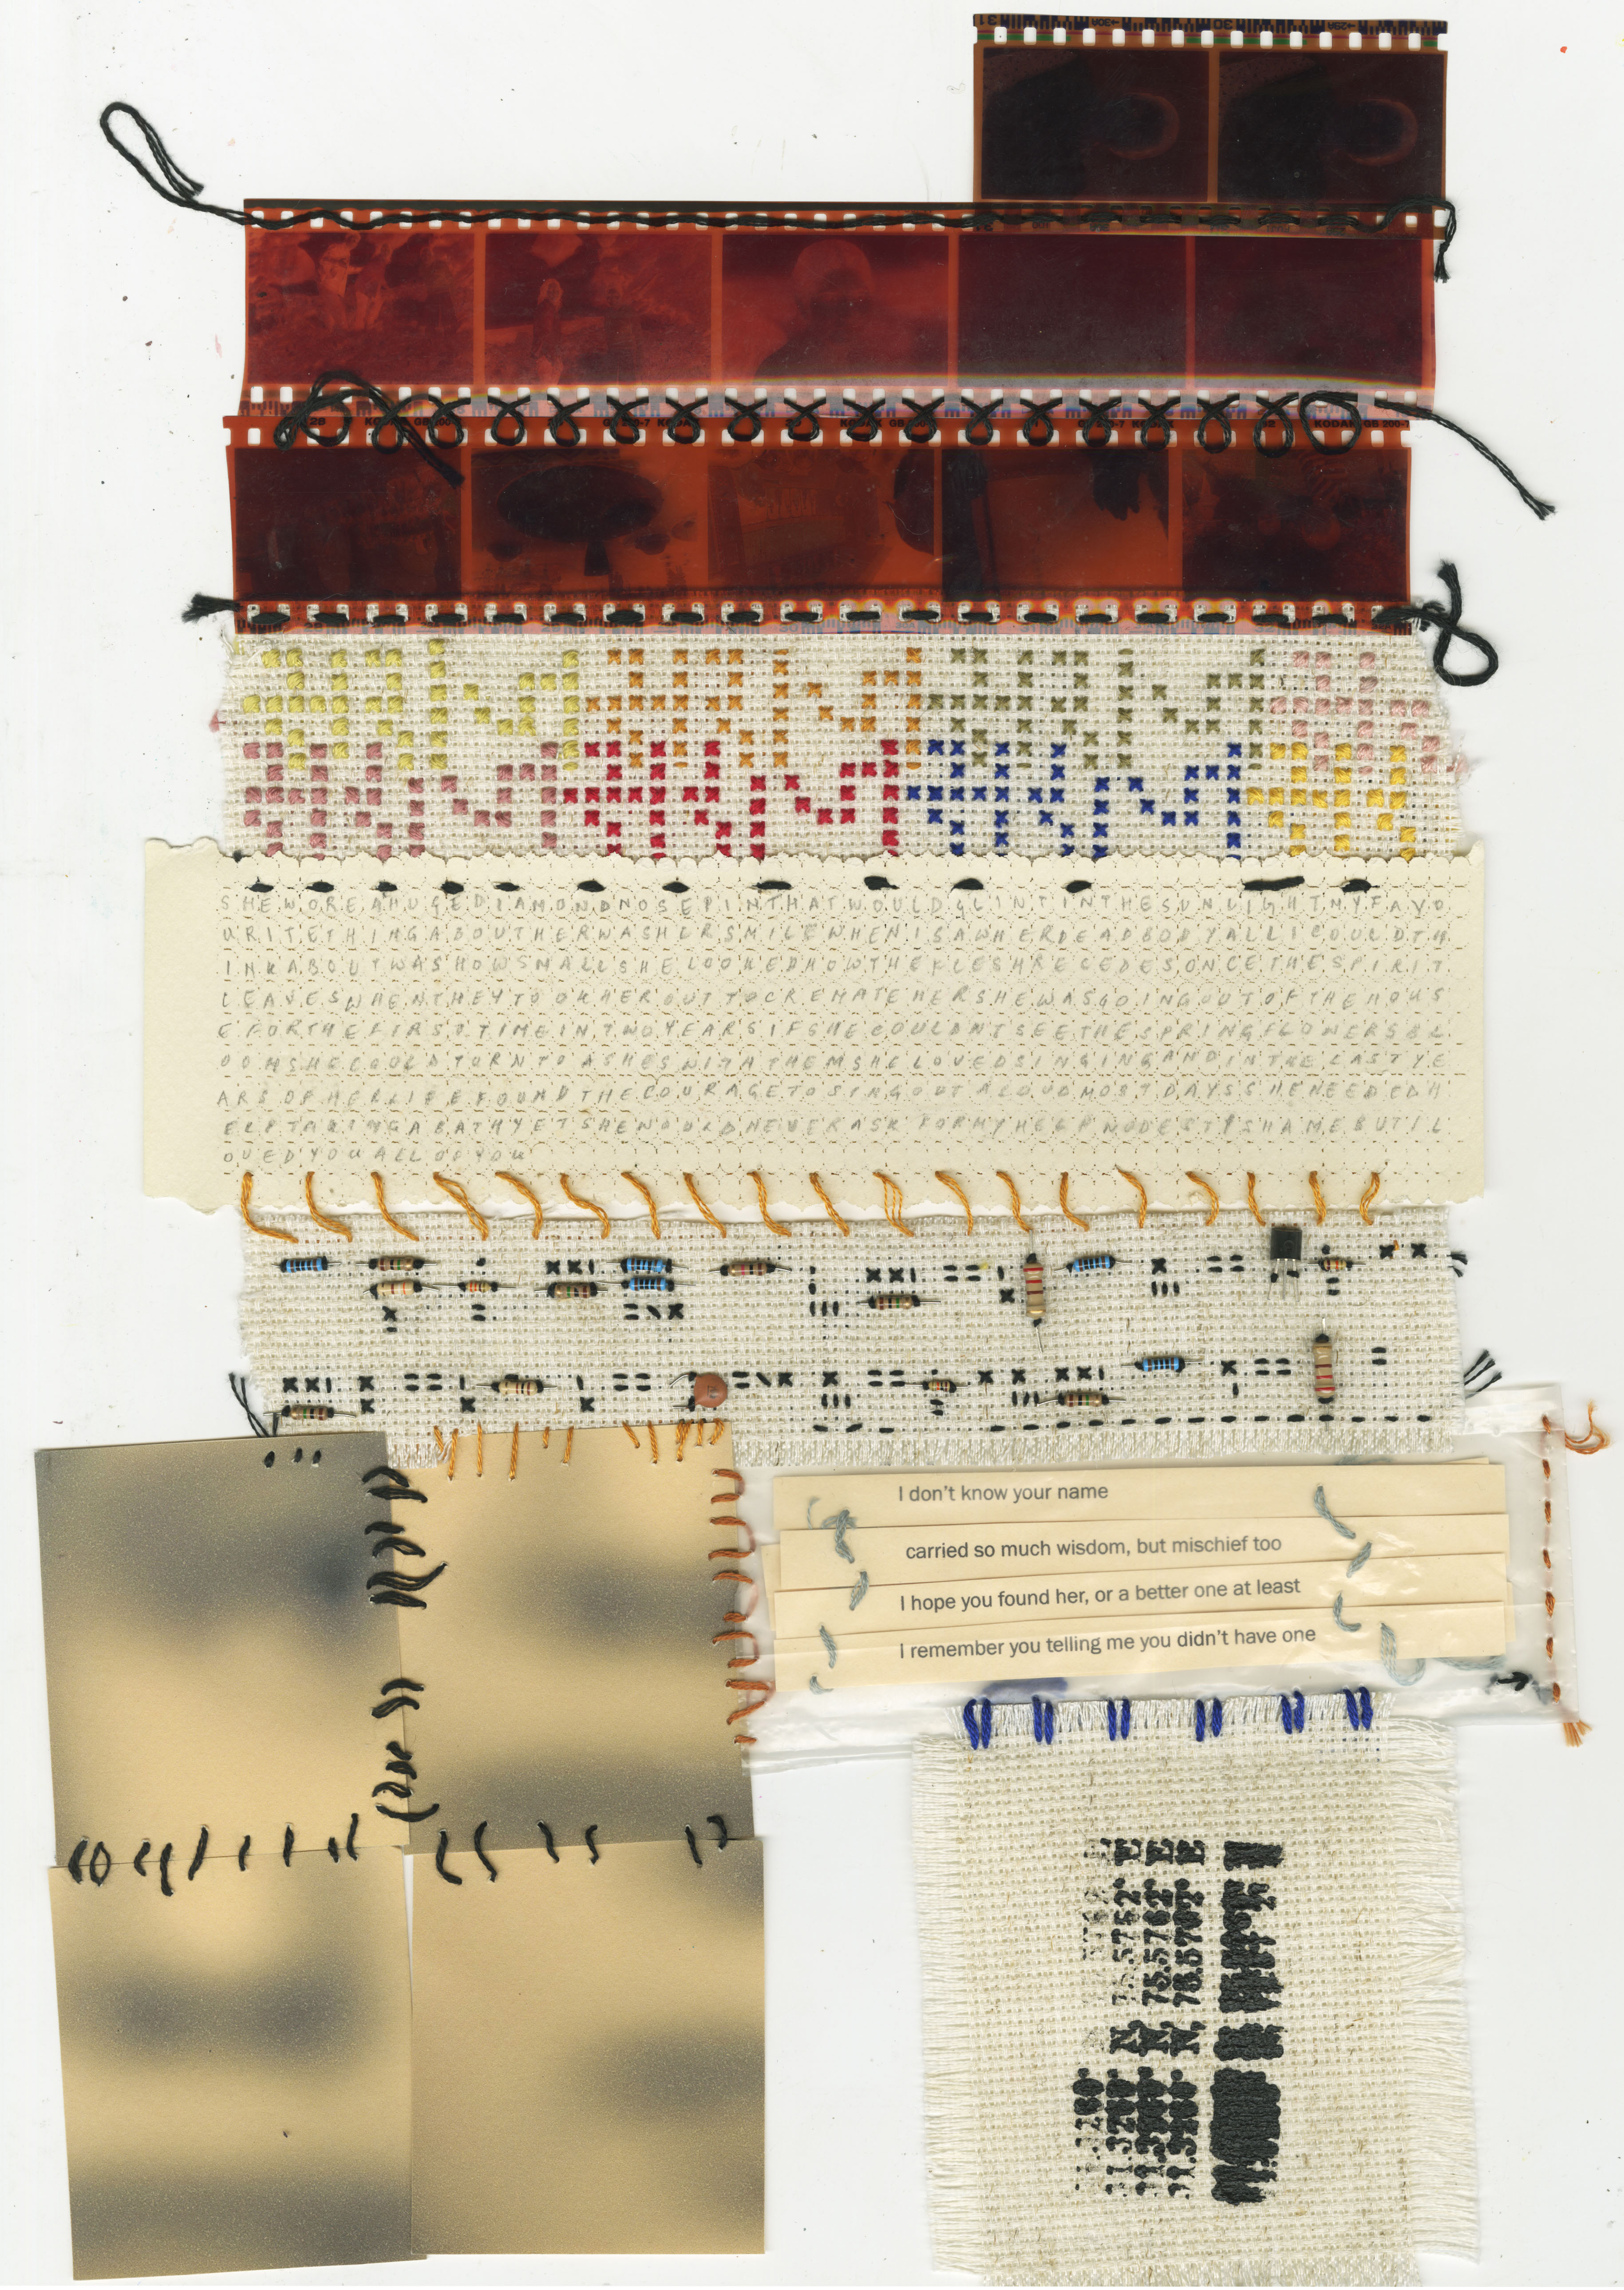 KODAK GB 200-7
SHEWOREAHUGEDIAMONDNOSEPINTHATWOULDGLINTINTHESUNLIGHTMYFAVO
URITETHINGABOUTHERWASHERSMILEWHENISAWHERDEADBODYALLICOULDTH
INKABOUTWASHOWSMALLSHELOOKEDHOWTHEFLESHRECEDESONCETHESPIRIT
LEAVESWHENTHEYTOOKHEROUTTOCREMATEHERSHEWASGOINGOUTOFTHEHOUS
EFORTHEFIRSTTIMEINTWOYEARSIFSHECOULDNTSEETHESPRINGFLOWERSBL
OOMSHECOULDTURNTOASHESWITHTHEMSHELOVEDSINGINGANDINTHELASTYE
ARSOFHERLIFEFOUNDTHECOURAGETOSINGOUTALOUDMOSTDAYSSHENEEDEDH
ELPTAKINGABATHYETSHEWOULDNEVERASKFORMYHELPMODESTYSHAMEBUTIL
OVEDYOUALLOFYOU
I don't know your name
carried so much wisdom, but mischief too
I hope you found her, or a better one at least
I remember you telling me you didn't have one